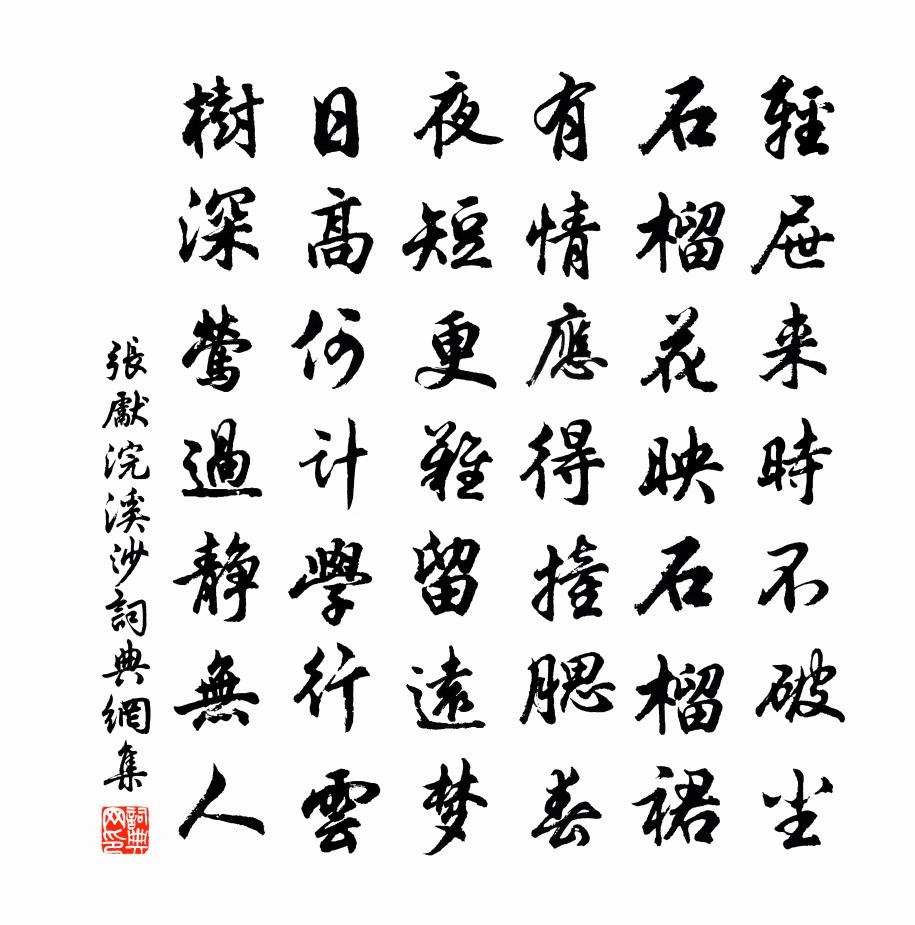 輕屐来時不破尘
石榴花映石榴裙
有情應得撞腮春
夜短更難留遠梦
日高何计學行雲
樹深鶯過靜無人
張獻浣溪沙詞典網集
詞典網印